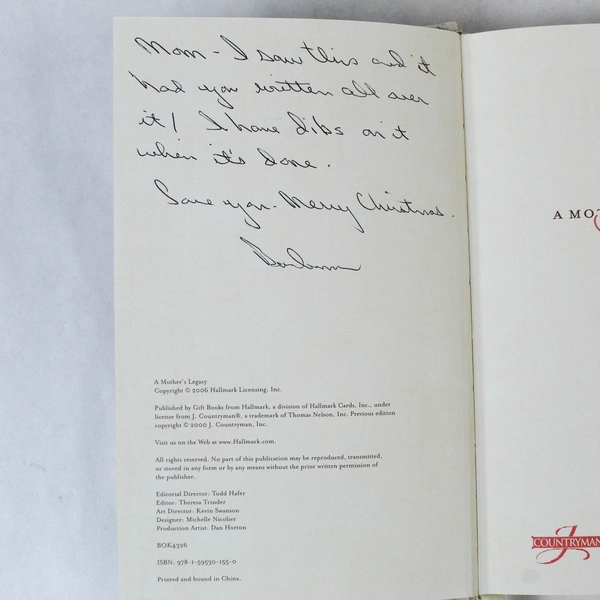 Mom - I saw this and it
had you written all over
it! I have dibs on it
when it's done.
Love you. Merry Christmas.
A Mother's Legacy
Copyright © 2006 Hallmark Licensing, Inc.
Published by Gift Books from Hallmark, a division of Hallmark Cards, Inc., under
license from J. Countryman®, a trademark of Thomas Nelson, Inc. Previous edition
copyright © 2000 J. Countryman, Inc.
Visit us on the Web at www.Hallmark.com.
All rights reserved. No part of this publication may be reproduced, transmitted,
or stored in any form or by any means without the prior written permission of
the publisher.
Editorial Director: Todd Hafer
Editor: Theresa Trinder
Art Director: Kevin Swanson
Designer: Michelle Nicolier
Production Artist: Dan Horton
BOK4326
ISBN: 978-1-59530-155-0
Printed and bound in China.
A MO
J COUNTRYMAN